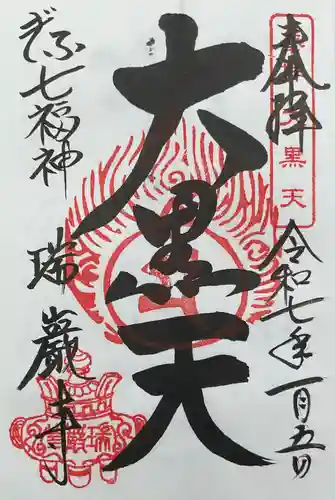 奉拝
黒天
令和七年一月五日
大黒天
ぎふ七福神
瑞巌寺